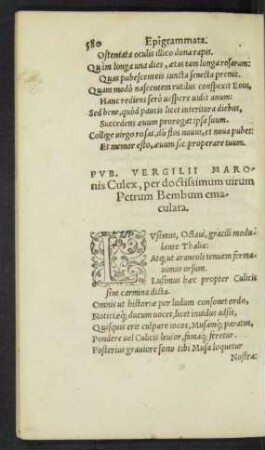 580 Epigrammata.
Ostentata oculis illico dona rapis.
Quàm longa una dies, ætas tam longa rosarum:
Quas pubescenteis iuncta senecta premit.
Quam modò nascentem rutilus conspexit Eous,
Hanc rediens serò uespere uidit anum:
Sed bene, quòd paucis licet interitura diebus,
Succedens æuum prorogat ipsa suum.
Collige uirgo rosas, dũ flos nouus, et noua pubes:
Et memor esto, æuum sic properare tuum.
PVB. VERGILII MARO-
nis Culex, per doctissimum uirum
Petrum Bembum ema-
culata.
LVsimus, Octaui, gracili modu-
lante Thalia:
Atq; ut araneoli tenuem forma-
uimus orsum.
Lusimus hæc propter Culicis
sint carmina dicta.
Omnis ut historiæ per ludum consonet ordo,
Noticiæq; ducum uoces, licet inuidus adsit,
Quisquis erit culpare iocos, Musamq; paratus,
Pondere uel Culicis leuior, famaq; feretur.
Posterius grauiore sono tibi Musa loquetur
Nostra: